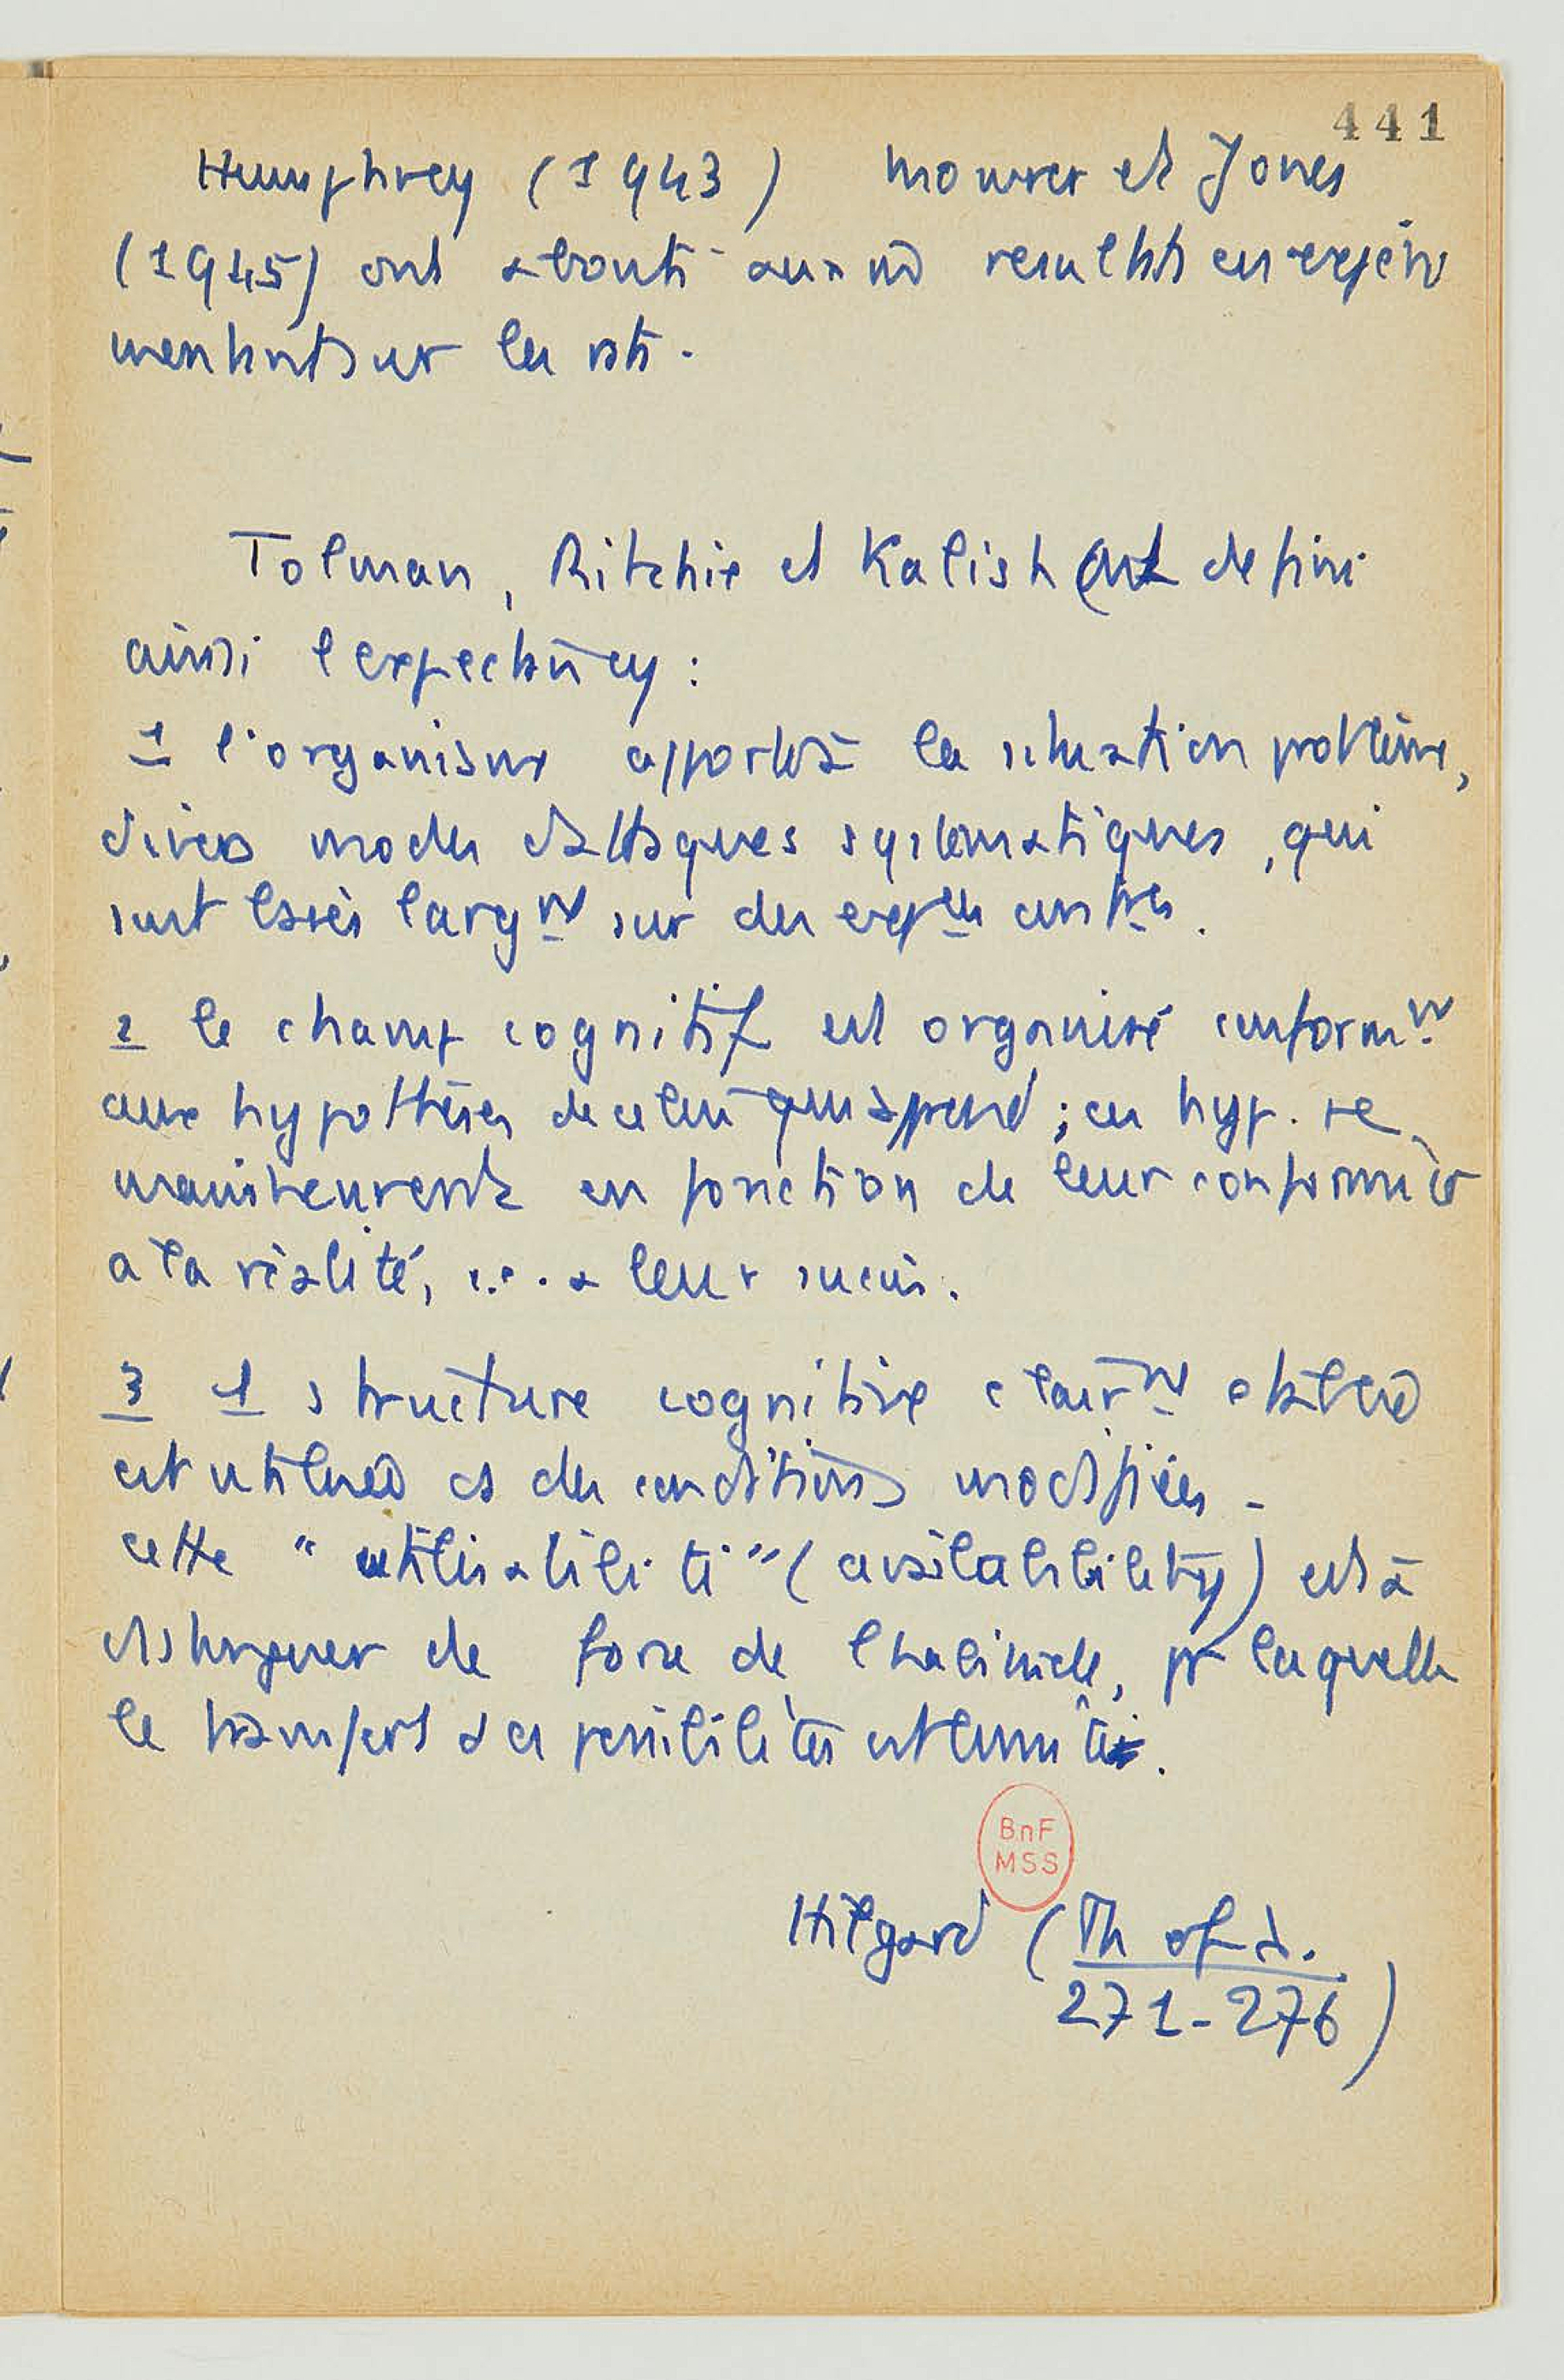 441
Humphrey (1943) Mowrer et Jones
(1945) ont abouti aux m̂ resultats en expéri
mentant sur les rats.
Tolman, Ritchie et Kalish ont defini
ainsi l expectancy :
1 l'organisme apporte à la situation problème,
divers modes d'attaques systematiques, qui
sont basés largnt sur des expces antres.
2 le champ cognitif est organisé conformnt
aux hypothèses de celui qui apprend ; ces hyp. se
maintiennent en fonction de leur conformité
a la réalité, i.e. a leur succès.
3 1 structure cognitive clairnt établie
est utilisée ds des conditions modifiées -
cette "utilisabilité" (availability) est à
distinguer de force de l habitude, pr laquelle
le transfert a ces possibilités est limité.
BnF
MSS
Hilgard (Th of L.
271-276)